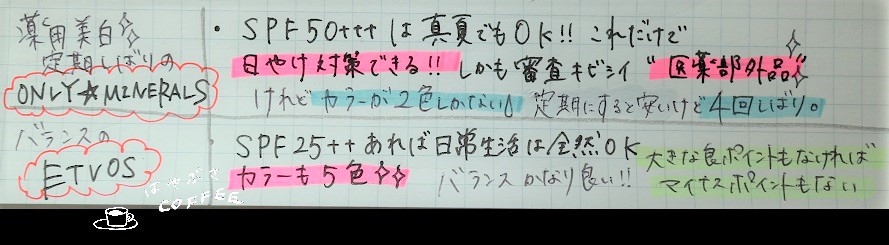 薬用美白
定期しばりの
ONLY☆MINERALS
・SPF50+++は真夏でもOK!! これだけで
日やけ対策できる!! しかも審査キビシイ"医薬部外品"
けれどカラーが2色しかない 定期にすると安いけど4回しばり。
バランスの
ETVOS
・SPF25++あれば日常生活は全然OK
カラーも5色 バランスかなり良い!!
大きな良ポイントもなければ
マイナスポイントもない
COFFEE